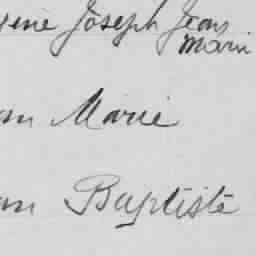 gène Joseph Jean
Marie
an Marie
an Baptiste